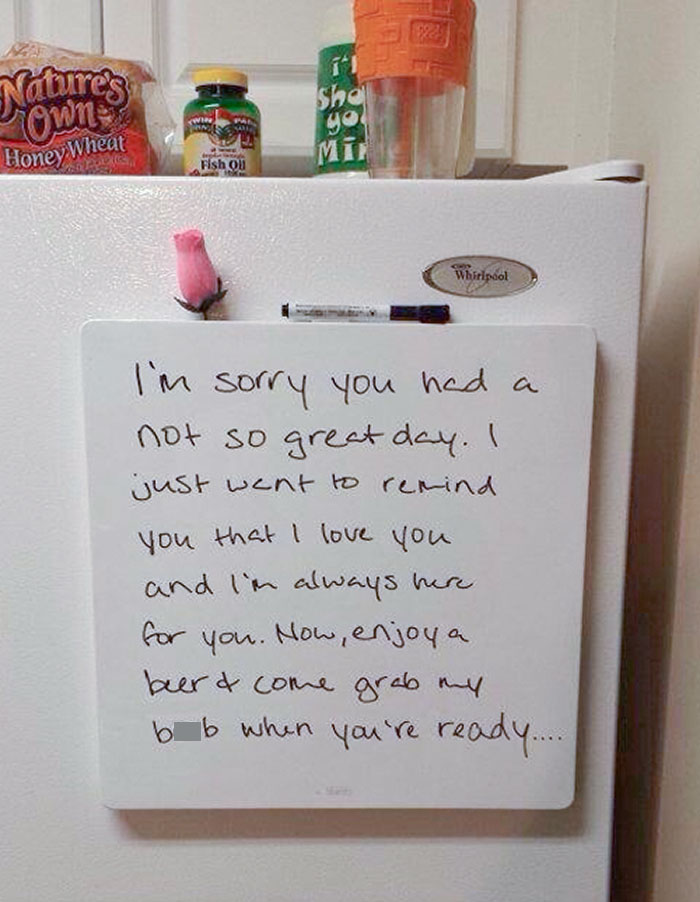 Nature's
Own
Honey Wheat
TWIN PACK
Fish Oil
it'
Sho
yo
Mi
Whirlpool
I'm sorry you had a
not so great day. I
just want to remind
you that I love you
and I'm always here
for you. Now, enjoy a
beer & come grab my
b b when you're ready....